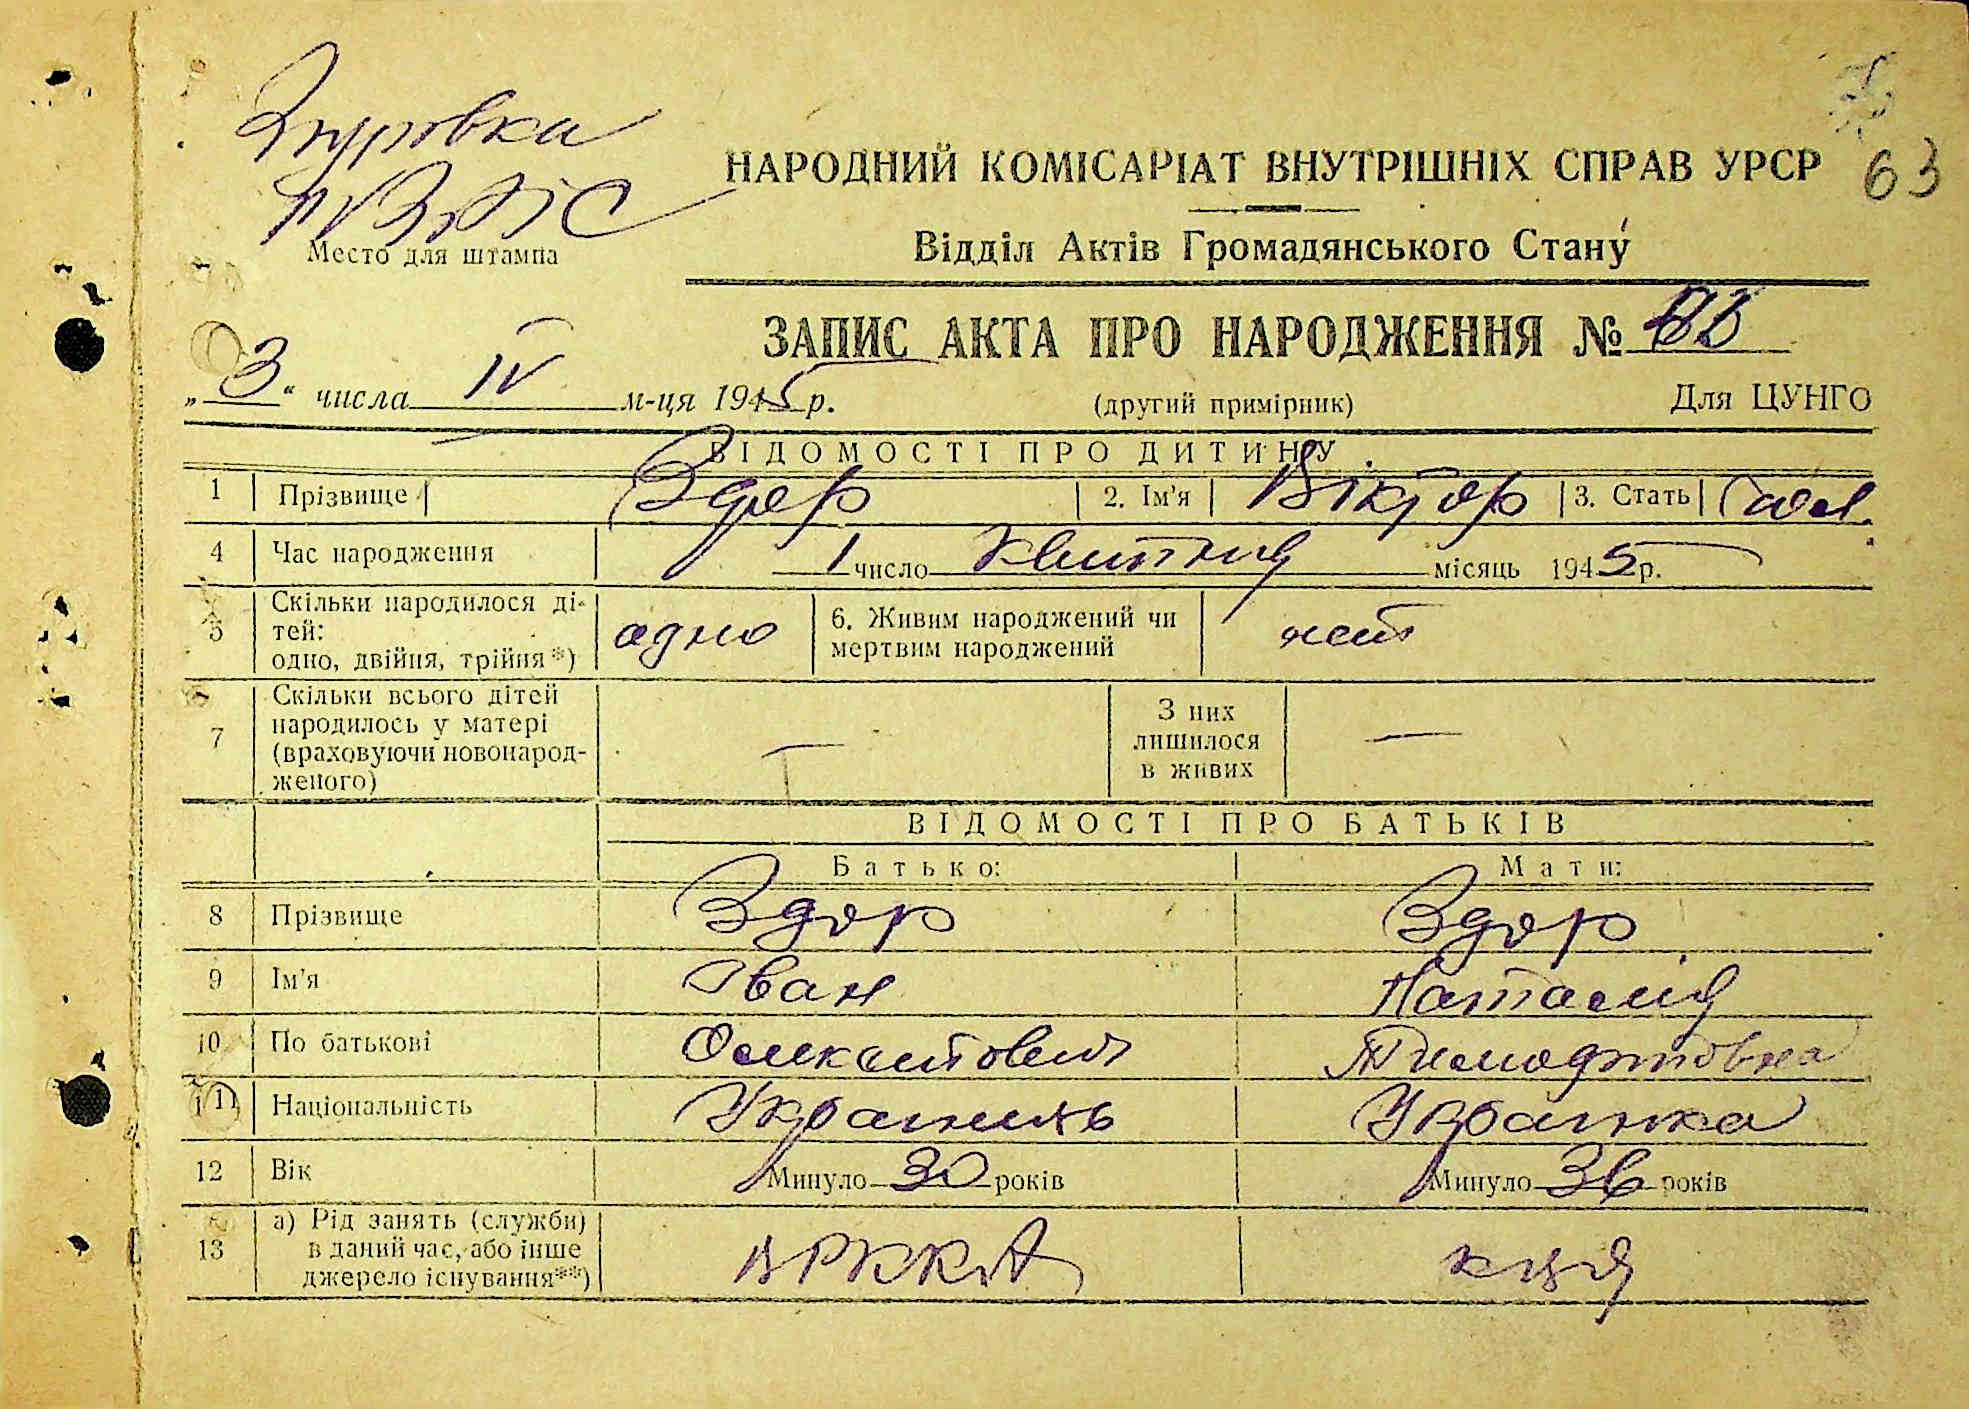 Згуровка
РВЗАГС
Место для штампа
63
НАРОДНИЙ КОМІСАРІАТ ВНУТРІШНІХ СПРАВ УРСР
Відділ Актів Громадянського Стану
ЗАПИС АКТА ПРО НАРОДЖЕННЯ №
„3“ числа IV м-ця 1945 р.
(другий примірник)
Для ЦУНГО
ВІДОМОСТІ ПРО ДИТИНУ
1 Прізвище Здор 2. Ім'я Віктор 3. Стать
4 Час народження 1 число Квітня місяць 1945 р.
5 Скільки народилося ді-
тей:
одно, двійня, трійня*) одно
6. Живим народжений чи
мертвим народжений
7 Скільки всього дітей
народилось у матері
(враховуючи новонарод-
женого) —
З них
лишилося
в живих —
ВІДОМОСТІ ПРО БАТЬКІВ
Батько: Мати:
8 Прізвище Здор Здор
9 Ім'я Іван Наталія
10 По батькові Тимофітовна
11 Національність Украинка
12 Вік Минуло 30 років Минуло 36 років
13 а) Рід занять (служби)
в даний час, або інше
джерело існування**) в РККА